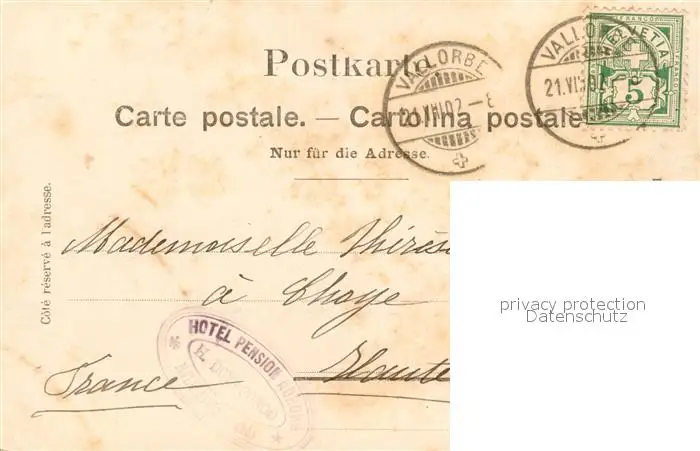 Postkarte
Carte postale. — Cartolina postale
Nur für die Adresse.
Côté réservé à l'adresse.
FRANCO
HELVETIA
5
VALLORBE
21.VII.02 – 8
VALLO
21.VII
Mademoiselle Thérès
à Choye
Haute
France
HOTEL PENSION
privacy protection
Datenschutz